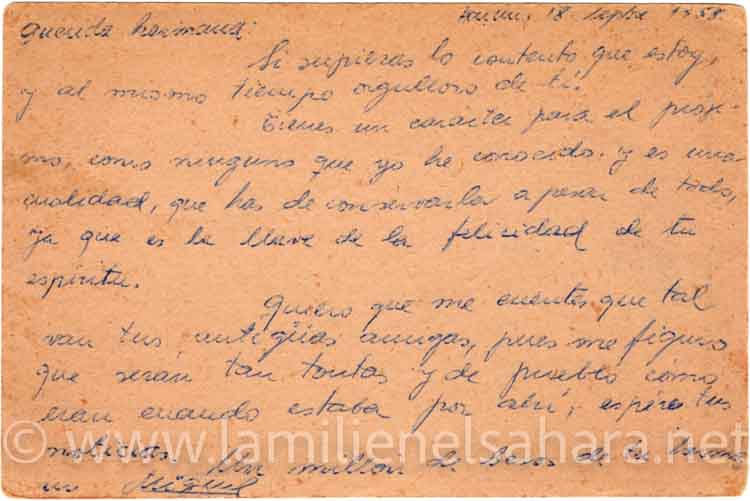 18 - Septbre 1958
Querida hermana:
Si supieras lo contento que estoy,
y al mismo tiempo orgulloso de ti.
Tienes un caracter para el proji-
mo, como ninguno que yo he conocido. y es una
cualidad, que has de conservarla a pesar de todo,
ya que es la llave de la felicidad de tu
espiritu.
Quiero que me cuentes que tal
van tus antigüas amigas, pues me figuro
que seran tan tontas y de pueblo como
eran cuando estaba por ahí, espero tus
noticias. Un millon de besos de tu herma
no Miguel
© www.lamilienelsahara.net